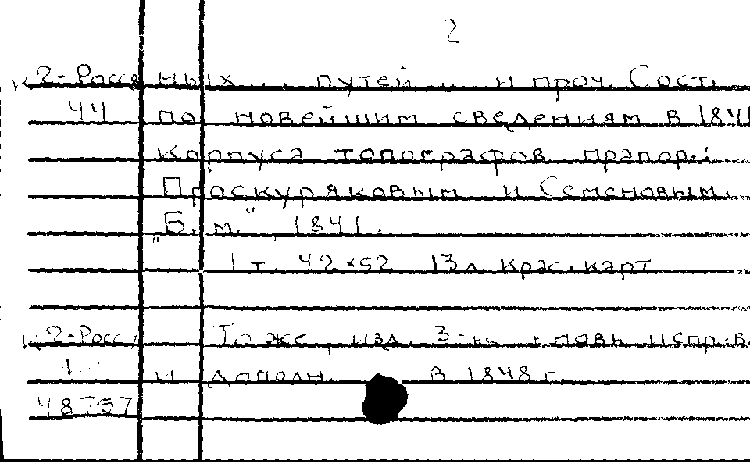 2
К2-Росс ных... путей... и проч. Сост.
44 по новейшим сведениям в 1841
Корпуса топографов прапор.:
Проскуряковым и Семеновым.
„Б. м.“, 1841.
1 т. 42×52 13л. крас. карт
К2-Росс То же, изд. 3-ье, вновь испр.
1 и дополн. в 1848 г.